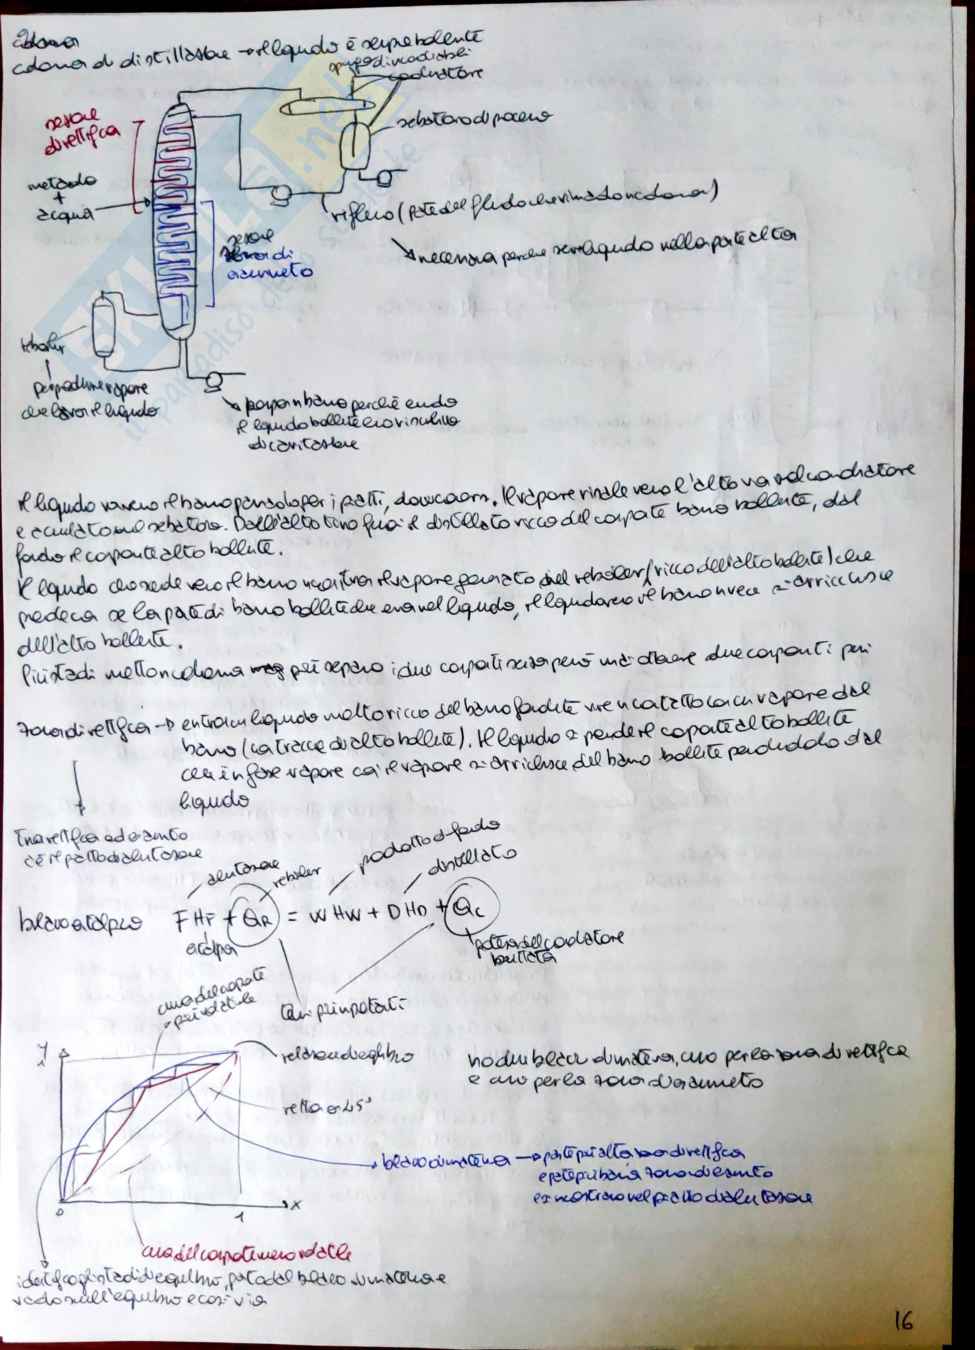 colonna di distillazione → il liquido è sempre bollente
condensatore
sezione
di rettifica
serbatoio di processo
metanolo
+
acqua
riflusso (parte del fluido che rimando in colonna)
sezione
di esaurimento
necessaria perché serve liquido nella parte alta
reboiler
per produrre vapore
che lavora il liquido
pompa in basso perché essendo
il liquido bollente c'è rischio
di cavitazione
Il liquido va verso il basso passando per i piatti,
Il vapore risale verso l'alto va nel condensatore
e accumulato nel serbatoio. Dall'alto tiro fuori il distillato ricco del componente basso bollente, dal
fondo il componente alto bollente.
Il liquido che scende verso il basso incontra il vapore generato dal reboiler (ricco dell'alto bollente) che
di basso bollente che era nel liquido, il liquido verso il basso invece si arricchisce
dell'alto bollente.
zona di rettifica → entra un liquido molto ricco del basso bollente viene in contatto con un vapore dal
basso (con tracce di alto bollente). Il liquido si prende il componente alto bollente
in fase vapore così il vapore si arricchisce del basso bollente perdendolo dal
liquido
Tra rettifica ed esaurimento
c'è il piatto di alimentazione
alimentazione
reboiler
prodotto di fondo
distillato
bilancio entalpico
F HF + QR = W HW + D HD + QC
entalpia
potenza del condensatore
curva del componente
più volatile
termini più importanti
y
1
relazione di equilibrio
ho due bilanci di materia, uno per la zona di rettifica
e uno per la zona di esaurimento
retta a 45°
bilancio di materia → parte più alta zona di rettifica
e parte più bassa zona di esaurimento
si incontrano nel piatto di alimentazione
0
1
x
curva del componente meno volatile
identifico gli stadi di equilibrio, parto dal bilancio di materia e
vado sull'equilibrio e così via
16